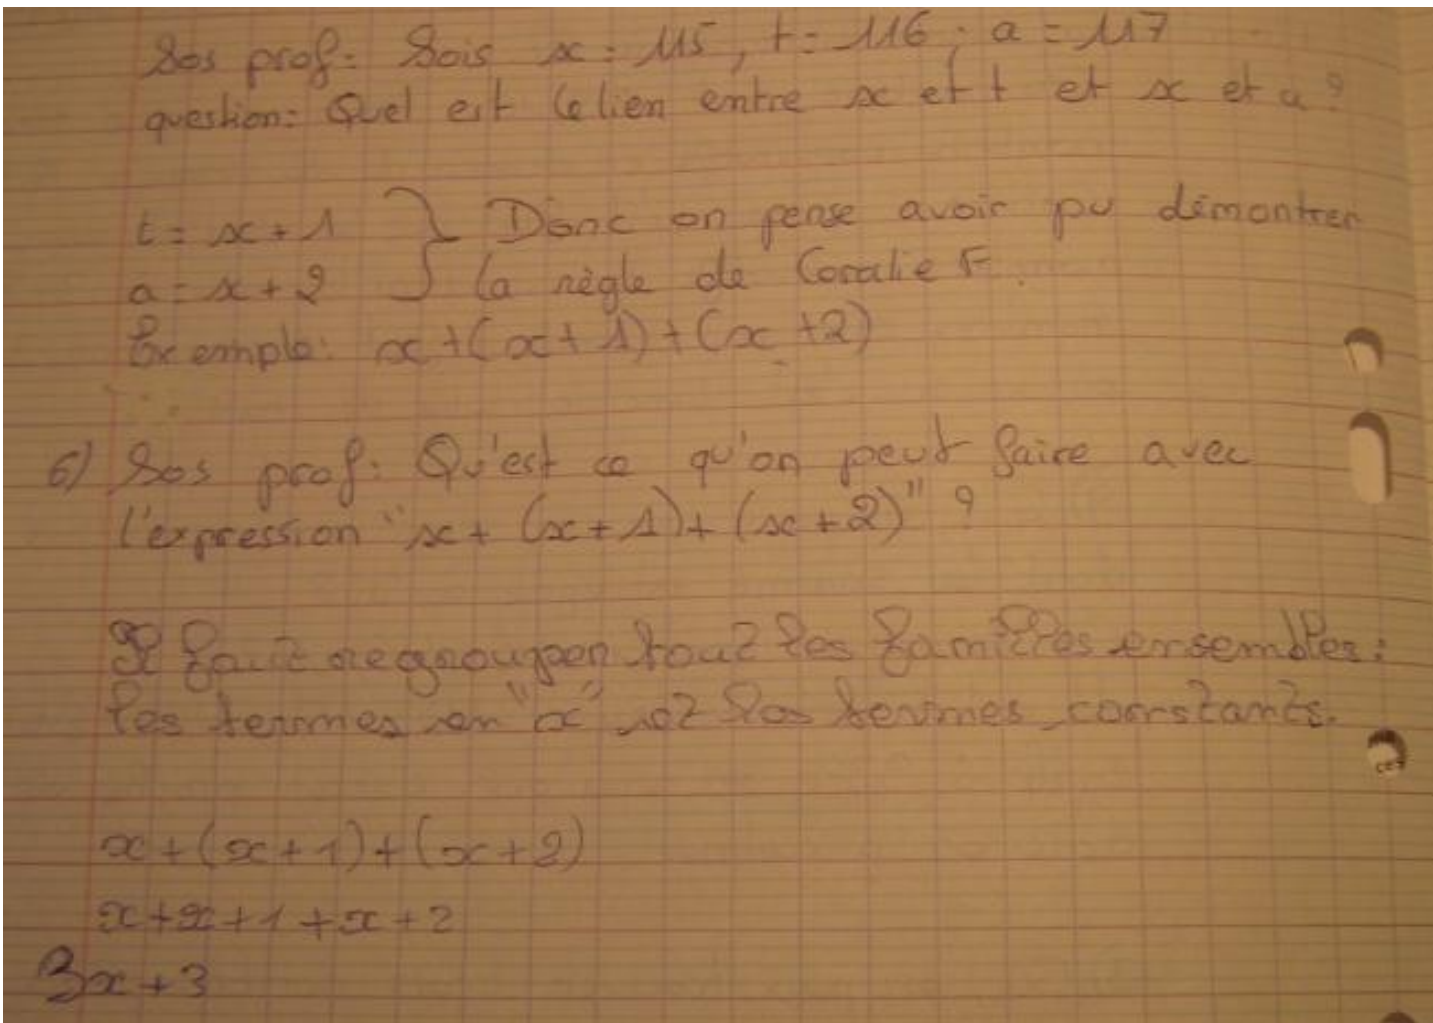 Sos prof: Sois x = 115, t = 116, a = 117
question: Quel est le lien entre x et t et x et a ?
t = x + 1 } Donc on pense avoir pu démontrer
a = x + 2 } la règle de Coralie F.
Exemple: x + (x + 1) + (x + 2)
6) Sos prof: Qu'est ce qu'on peut faire avec
l'expression "x + (x + 1) + (x + 2)" ?
Il faut regrouper tout les familles ensembles:
les termes en "x" et les termes constants.
x + (x + 1) + (x + 2)
x + x + 1 + x + 2
3x + 3